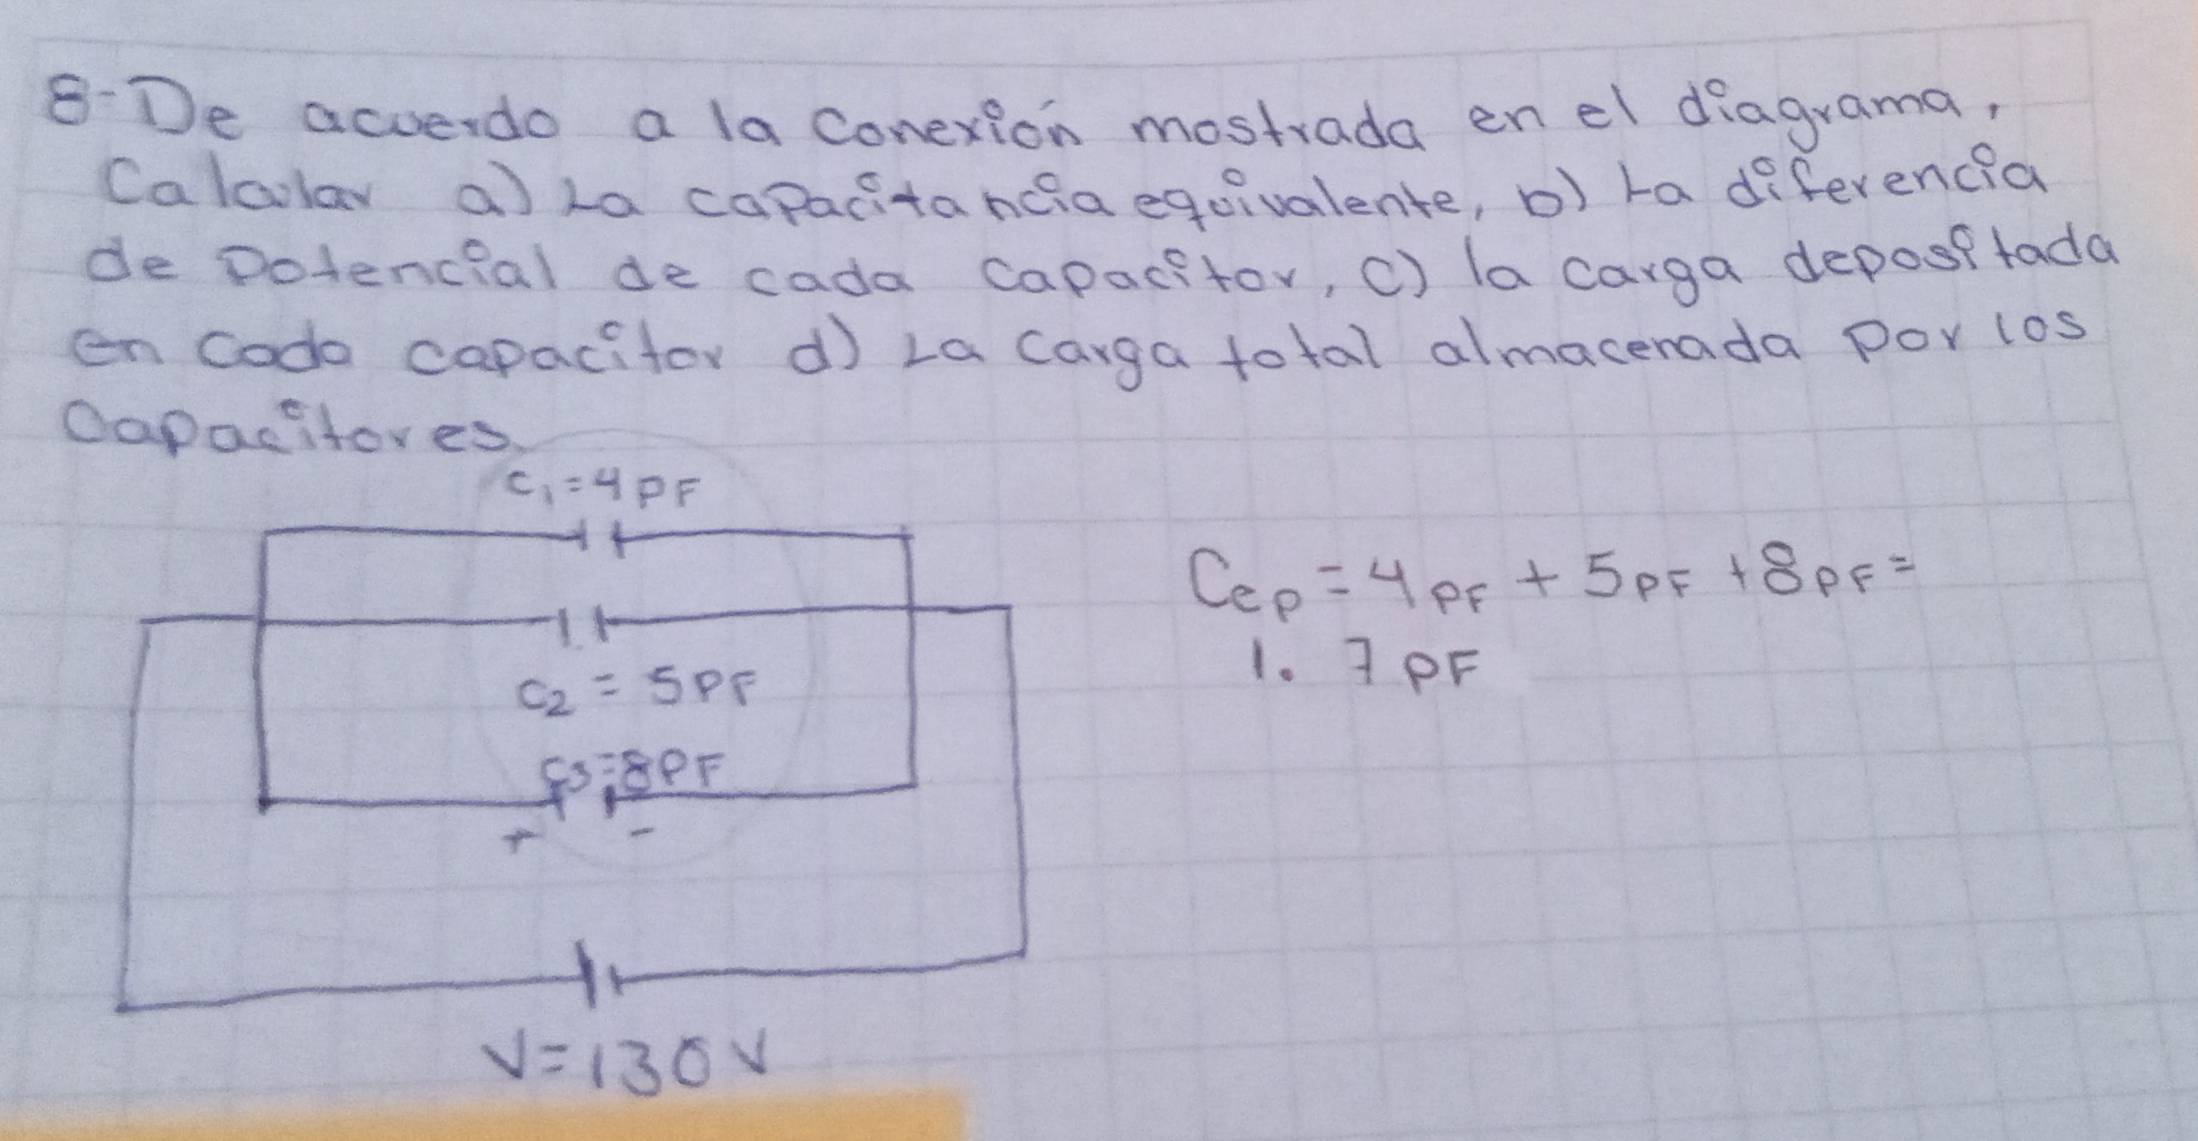 8-De acuerdo a la conexión mostrada en el diagrama,
Calcular a) La capacitancia equivalente, b) La diferencia
de Potencial de cada capacitor, c) la carga depositada
en cada capacitor d) La carga total almacenada por los
capacitores.
C₁=4PF
C₂ = 5PF
C3=8PF
+ -
V=130V
Cep=4PF+5PF+8PF=
1. 7PF